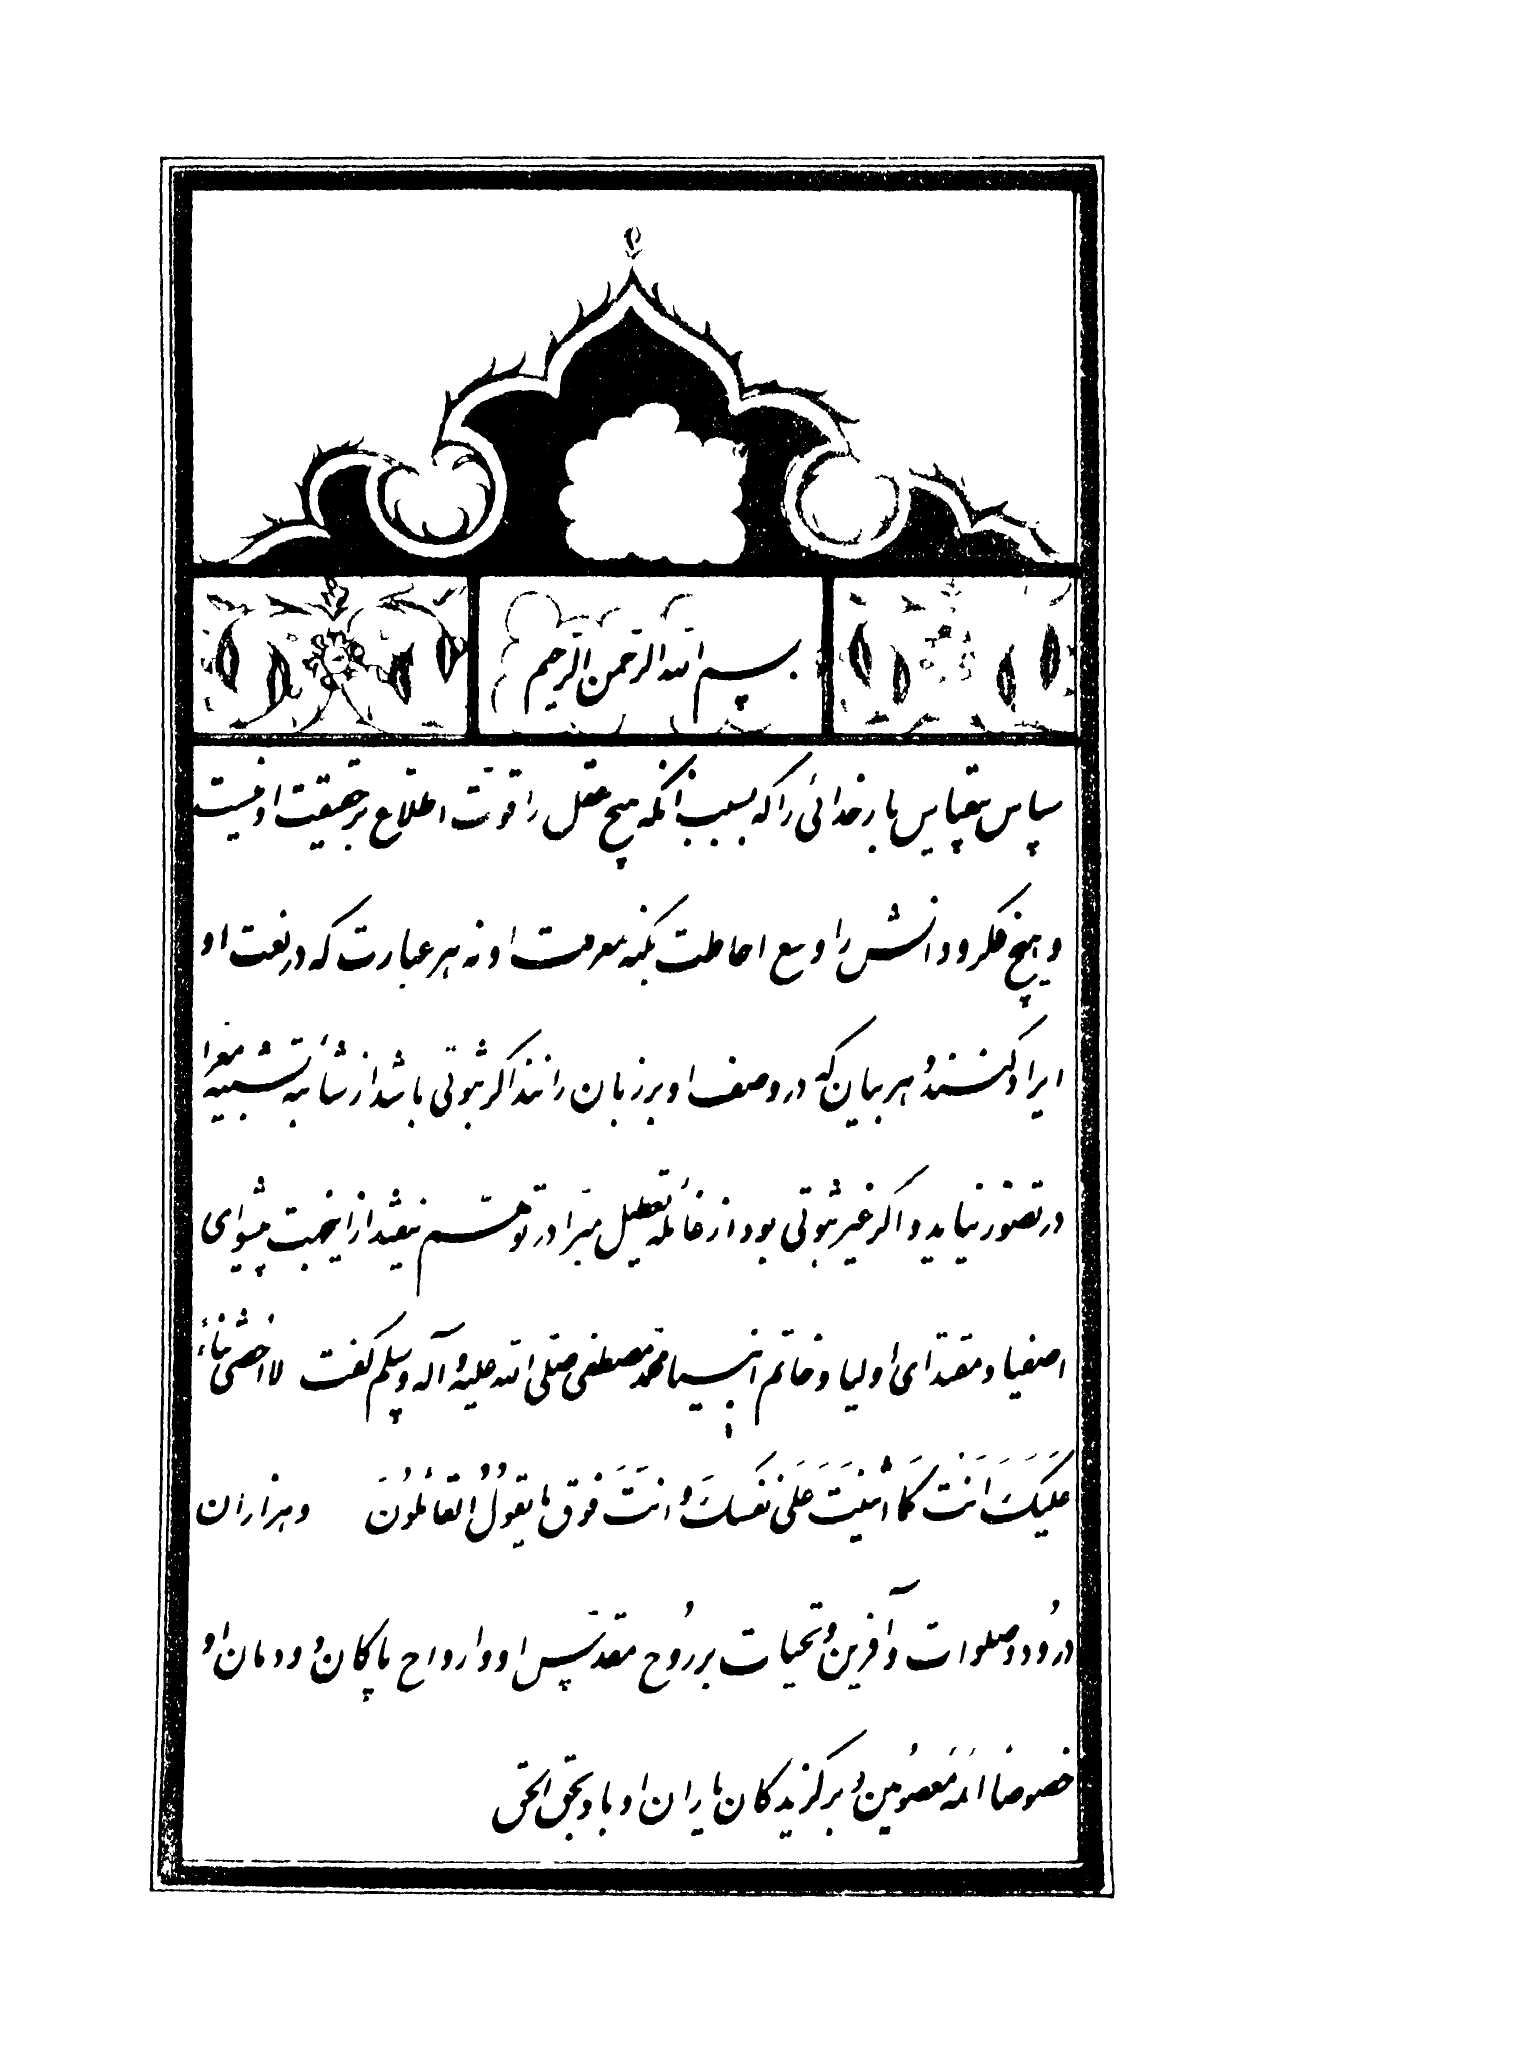 بسم الله الرحمن الرحیم
سپاس بیقیاس بار خدائی را که بسبب آنکه هیچ عقل را قوّت اطلاع بر حقیقت او نیست
و هیچ فکر و دانش را وسع احاطت بکنه معرفت او نه هر عبارت که در نعت او
ایراد کنند و هر بیان که در وصف او بر زبان رانند اگر ثبوتی باشد از شائبه تشبیه معرّا
در تصوّر نیاید و اگر غیر ثبوتی بود از غائله تعطیل مبرّا در توهّم نیفتد از اینجهت پیشوای
اصفیا و مقتدای اولیا و خاتم انبیا محمد مصطفی صلّی الله علیه و آله و سلم گفت لا احصی ثناءً
عَلَیکَ اَنتَ کَما اَثنَیتَ عَلی نَفسِکَ و اَنتَ فَوقَ ما یَقولُ القائلُونَ و هزاران
درُود و صلوات و آفرین و تحیات بر رُوح مقدّس او و ارواح پاکان دودمان او
خصوصا ائمه مَعصُومین و برگزیدگان یاران او باد بحق الحق